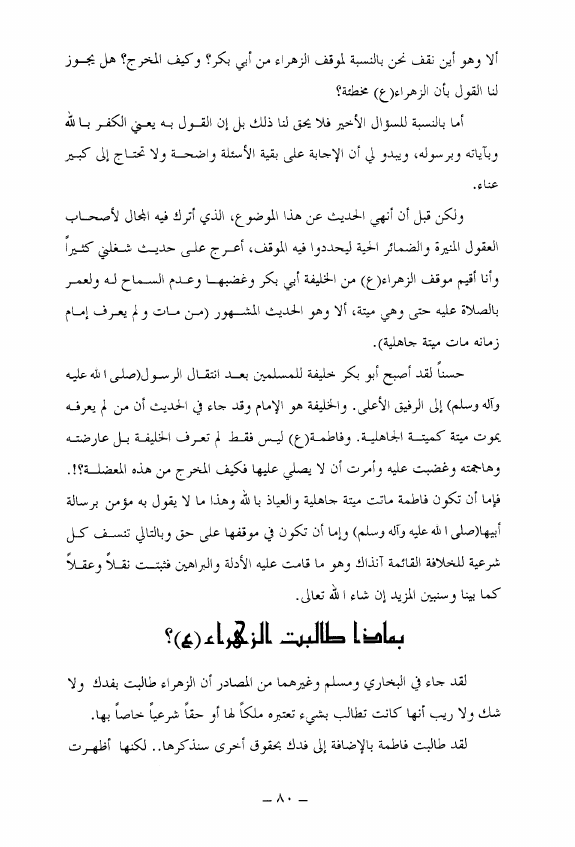 ألا وهو أين نقف نحن بالنسبة لموقف الزهراء من أبي بكر؟ وكيف المخرج؟ هل يجوز
لنا القول بأن الزهراء(ع) مخطئة؟
أما بالنسبة للسؤال الأخير فلا يحق لنا ذلك بل إن القول به يعني الكفر بالله
وبآياته وبرسوله، ويبدو لي أن الإجابة على بقية الأسئلة واضحة ولا تحتاج إلى كبير
عناء.
ولكن قبل أن أنهي الحديث عن هذا الموضوع، الذي أترك فيه المجال لأصحاب
العقول المنيرة والضمائر الحية ليحددوا فيه الموقف، أعرج على حديث شغلني كثيراً
وأنا أقيم موقف الزهراء(ع) من الخليفة أبي بكر وغضبها وعدم السماح له ولعمر
بالصلاة عليه حتى وهي ميتة، ألا وهو الحديث المشهور (من مات ولم يعرف إمام
زمانه مات ميتة جاهلية).
حسناً لقد أصبح أبو بكر خليفة للمسلمين بعد انتقال الرسول(صلى الله عليه
وآله وسلم) إلى الرفيق الأعلى. والخليفة هو الإمام وقد جاء في الحديث أن من لم يعرفه
يموت ميتة كميتة الجاهلية. وفاطمة(ع) ليس فقط لم تعرف الخليفة بل عارضته
وهاجمته وغضبت عليه وأمرت أن لا يصلي عليها فكيف المخرج من هذه المعضلة؟!.
فإما أن تكون فاطمة ماتت ميتة جاهلية والعياذ بالله وهذا ما لا يقول به مؤمن برسالة
أبيها(صلى الله عليه وآله وسلم) وإما أن تكون في موقفها على حق وبالتالي تنسف كل
شرعية للخلافة القائمة آنذاك وهو ما قامت عليه الأدلة والبراهين فثبتت نقلاً وعقلاً
كما بينا وسنبين المزيد إن شاء الله تعالى.
بماذا طالبت الزهراء(ع)؟
لقد جاء في البخاري ومسلم وغيرهما من المصادر أن الزهراء طالبت بفدك ولا
شك ولا ريب أنها كانت تطالب بشيء تعتبره ملكاً لها أو حقاً شرعياً خاصاً بها.
لقد طالبت فاطمة بالإضافة إلى فدك بحقوق أخرى سنذكرها.. لكنها أظهرت
– ٨٠ –